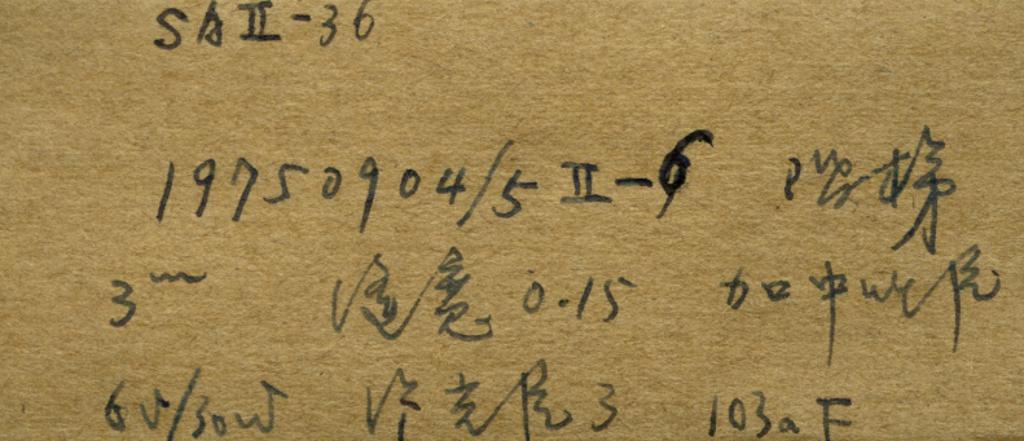 SA II-36
19750904/5 II-6 阶梯
3ᵐ 缝宽 0.15 加中性片
6V/30W 冷光片3 103aF